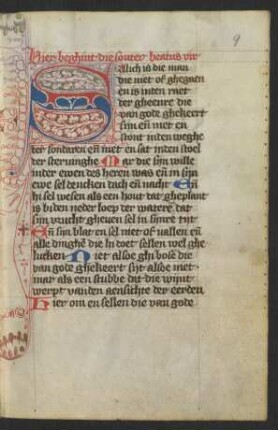 9
Hier beghint die souter beatus vir
Salich is die man
die niet of ghegaen
en is inden raet
der gheenre die
van gode ghekeert
sijn en̄ niet en
stont inden weghe
der sondaren en̄ niet en sat inden stoel
der steruinghe Mar die sijn wille
inder ewen des heren was en̄ in sijn
ewe sel dencken dach en̄ nacht En̄
hi sel wesen als een hout dat gheplant
is biden neder loep der watere dat
sijn vrucht gheuen sel in sijnre tijt
En̄ sijn blat en sel niet of vallen en̄
alle dinghe die hi doet sellen wel ghe
lucken Niet also ghi bose die
van gode ghekeert sijt also niet
mar als een stubbe dat die wijnt
werpt vanden aensichte der eerden
Hier om en sellen die van gode